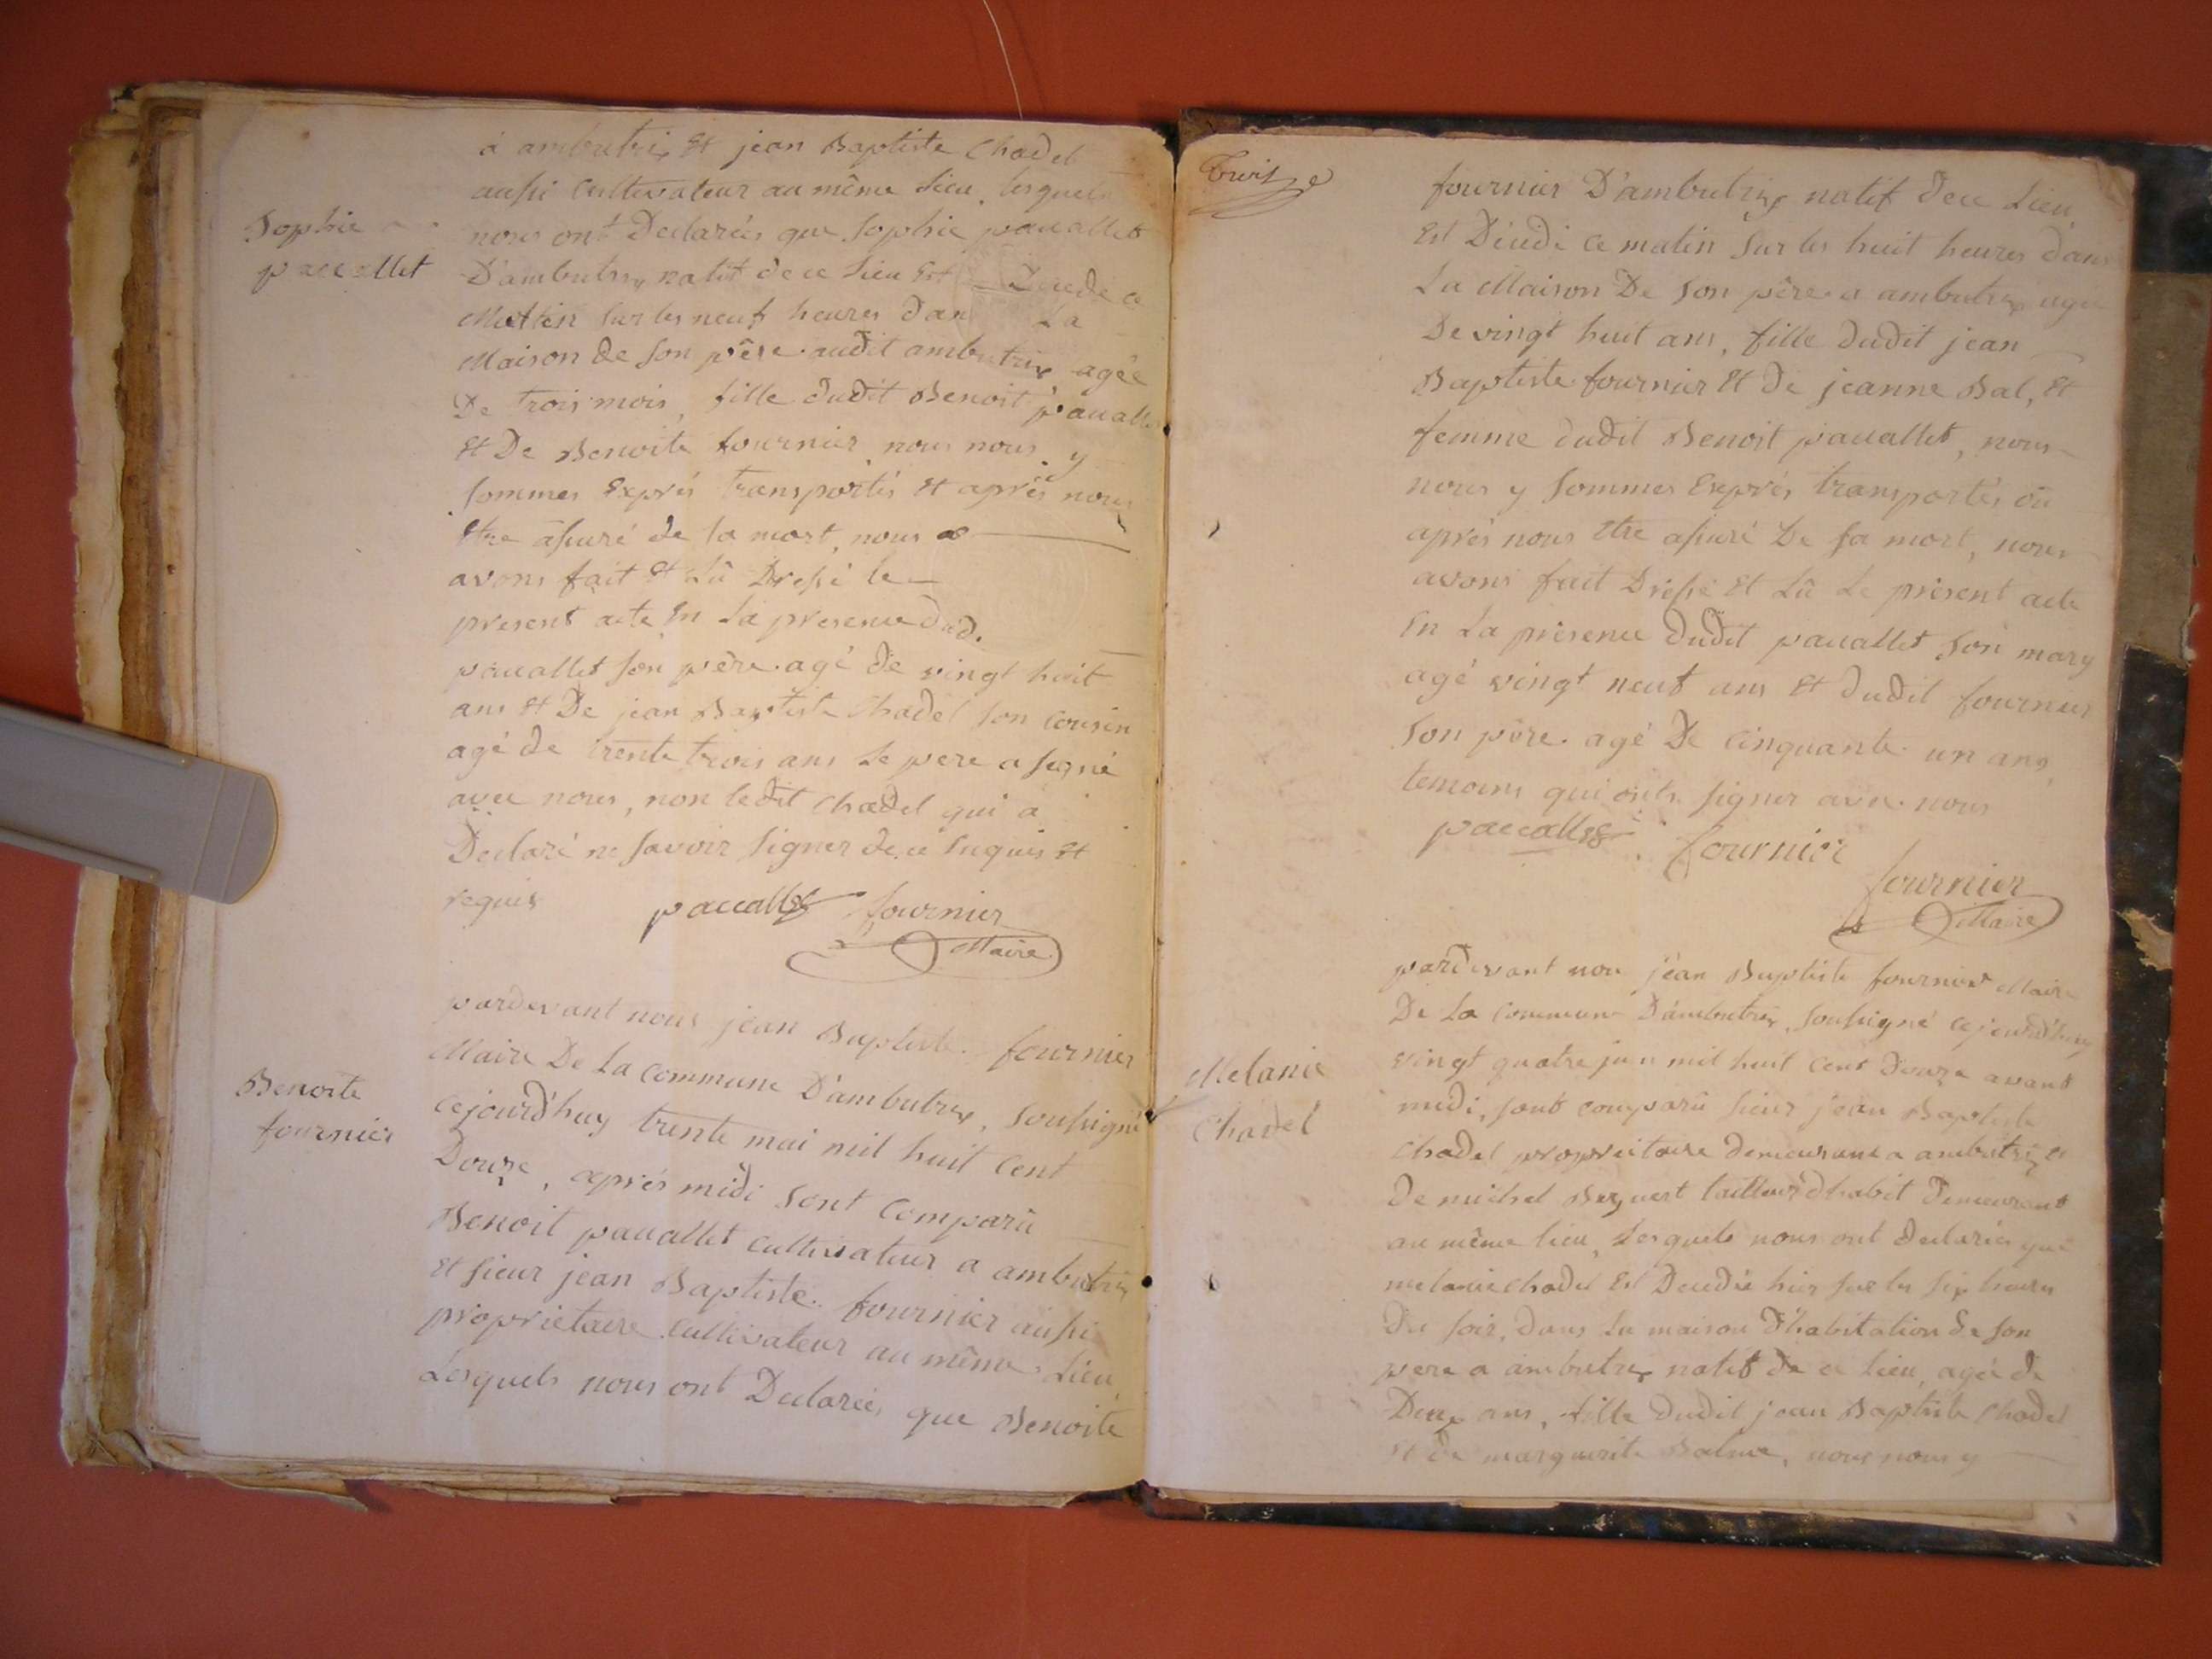 à ambutrix Et jean Baptiste Chadel
aussi Cultivateur au même Lieu, lesquels
Sophie
paccallet
nous ont Declarés que Sophie paccallet
D'ambutrix natif de ce Lieu Est Decede ce
Mattin Sur les neuf heures dan La
Maison de Son père audit ambutrix agée
De trois mois, fille dudit Benoit paccallet
Et De Benoite fournier nous nous y
Sommes Exprés transportés Et aprés nous
Etre assuré de la mort, nous
avons fait Et Lû Dressé le
present acte En La presence dud.
paccallet son père agé de vingt huit
ans Et De jean Baptiste Chadel son Cousin
agé de trente trois ans Le pere a signé
avec nous, non ledit Chadel qui a
Declaré ne Savoir Signer de ce Enquis Et
requis paccallet fournier
Maire
pardevant nous jean Baptiste fournier
Maire De La Commune D'ambutrix, Soussigné
Benoite
fournier
Cejourd'huy trente mai mil huit Cent
Douze, aprés midi Sont Comparû
Benoit paccallet Cultivateur a ambutrix
Et Sieur jean Baptiste fournier aussi
proprietaire Cultivateur au même Lieu,
Lesquels nous ont Declarées que Benoite
Treize
fournier D'ambutrix natif de ce Lieu,
Est Décédé ce matin Sur les huit heures dans
La Maison De Son père a ambutrix agée
De vingt huit ans, fille dudit jean
Baptiste fournier Et de jeanne Bal, Et
femme dudit Benoit paccallet, nous
nous y Sommes Exprés transportés où
aprés nous Etre assuré De sa mort, nous
avons fait Dressé Et Lû Le présent acte
En La présence dudit paccallet Son mary
agé vingt neuf ans Et dudit fournier
Son père agé De Cinquante un ans,
temoins qui onts signer avec nous
paccallet fournier
fournier
Maire
pardevant nou jean Baptiste fournier Maire
De La Commune D'ambutrix, Soussigné cejourd'huy
vingt quatre juin mil huit Cent Douze avant
Melanie
Chadel
midi, sont comparû Sieur jean Baptiste
Chadel proprietaire demeurant a ambutrix Et
De michel tailleur d'habit Demeurant
au même lieu, Lesquels nous ont declarés que
melanie Chadel Est Decedée hier sur les six heures
du Soir, dans La maison d'habitation de Son
pere a ambutrix natif de ce Lieu, agée de
Deux ans, fille dudit jean Baptiste Chadel
Et de marguerite Balme, nous nous y